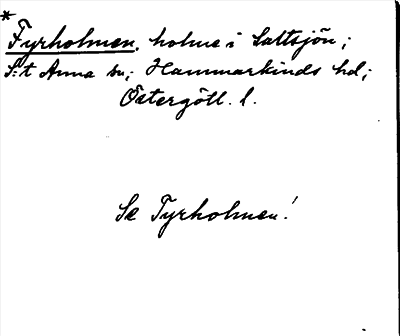 *
Fyrholmen, holme i Saltsjön;
S:t Anna sn; Hammarkinds hd;
Östergötl. l.
Se Tyrholmen!